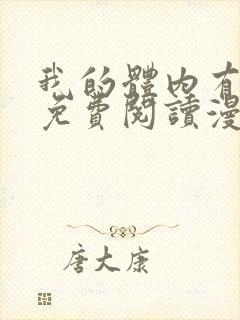 我的體内有
免費閱讀漫
唐大康